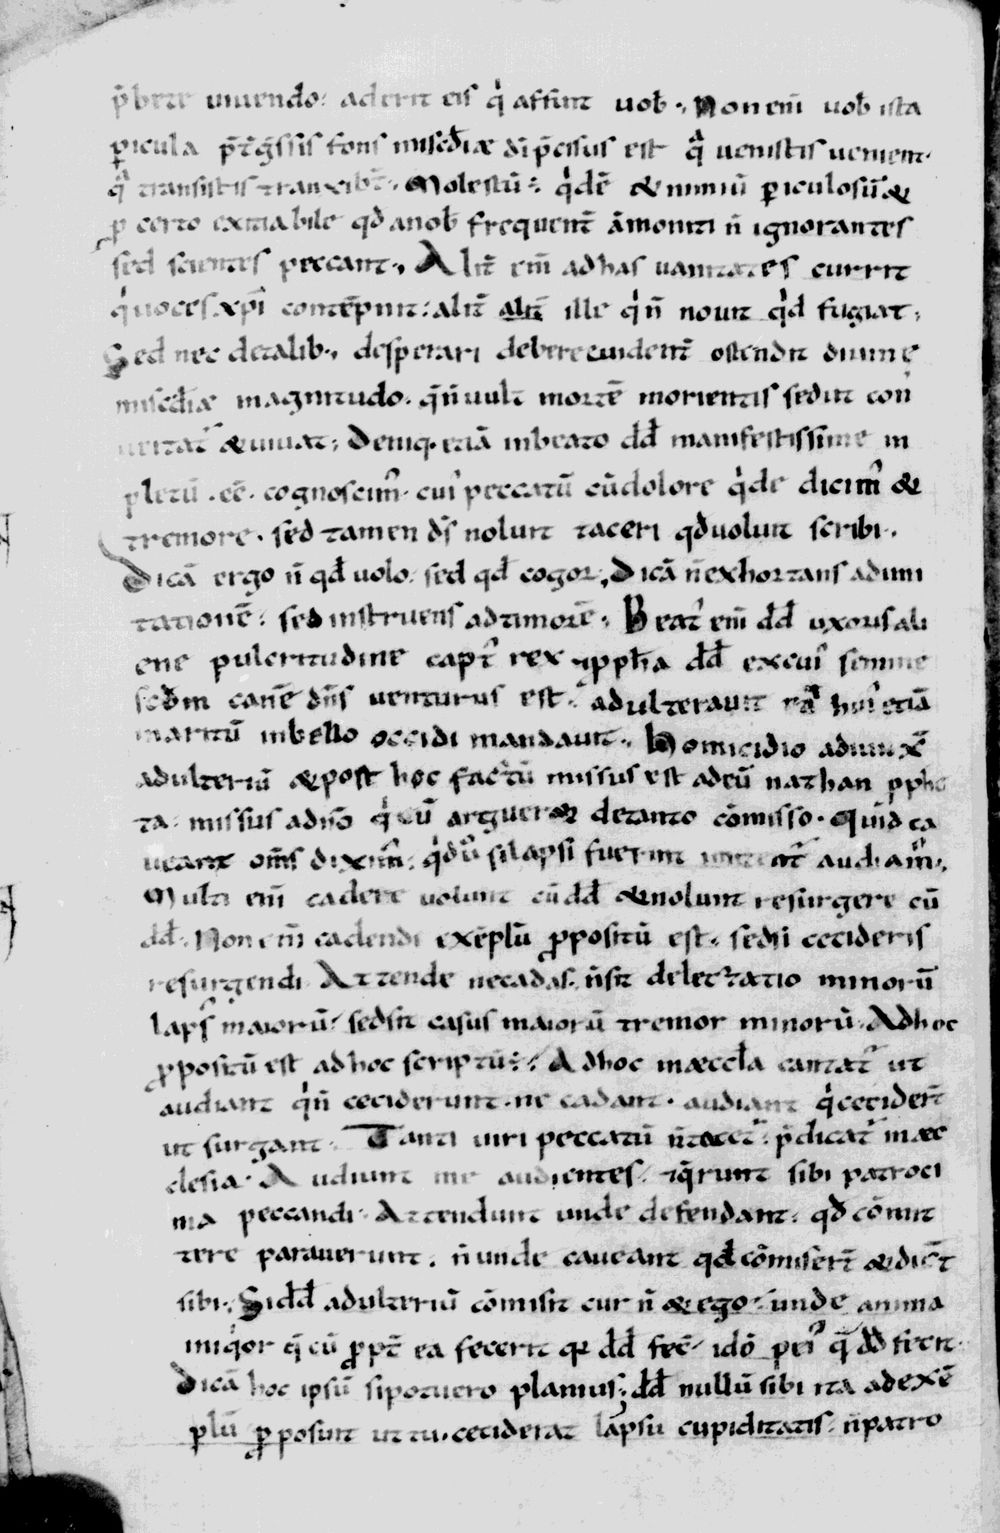 p̄bete uiuendo. aderit eis q' affuit uob̄. Non eni̅ uob̄ ista
pericula p̄t̄g̅ssis fons mis̅c̅diæ di̅ p̄cisus est qͣ uenistis uenient.
qͣ transistis transibt̄. Molestū; q'dē & nimiū periculosū &
p certo exitiabile qd̄ a nob̄ frequent̄ āmoniti n̄ ignorantes
sed scientes peccant. Alit̄ eni̅ ad has uanitates currit
q' uoces xp̄i contēpnit: alit̄ alit̄ ille q' n̄ nouit q'd fugiat;
Sed nec de talib; desperari debere euident̄ ostendit diuine
mis̅c̅diæ magnitudo. q̄ n̄ uult mortē morientis sed ut con
uertat' & uiuat; Deniq; etiā in beato dd̄ manifestissime in
pletū. eē. cognoscim'. cui' peccatū cū dolore q'de dicim' &
tremore. sed tamen ds̄ noluit taceri qd̄ uoluit scribi.
Dicā ergo n̄ qd̄ uolo. sed qd̄ cogor; Dicā n̄ exhortans ad imi
tationē: sed instruens ad timorē. Beat' eni̅ dd̄ uxoris ali
ene pulcritudine capt' rex & ppha dd̄ ex cui' semine
sc̄d̄m carnē dn̄s uenturus est. adulterauit etͣ hui' etiā
maritū in bello occidi mandauit. Homicidio adiunxē
adulteriū & post hoc factū missus est ad eū nathan pphe
ta. missus a dn̄o q' eū argueret de tanto cōmisso. Quid ca
ueant om̄s dixim'. q'd ū si lapsi fuerint audiam'.
Multi eni̅ cadere uolunt cū dd̄ & nolunt resurgere cū
dd̄. Non eni̅ cadendi exēplū ppositū est. sed si cecideris
resurgendi. Attende ne cadas. n̄ sit delectatio minorū
laps' maiorū. sed sit casus maiorū tremor minorū. Ad hoc
ppositū est ad hoc scriptū; Ad hoc in æccl̄a cantat' ut
audiant q' n̄ ceciderunt. ne cadant. audiant q' cecider̄t
ut surgant. Tanti uiri peccatū n̄ tacet'. p̄dicat' in æc
clesia. Audiunt me audientes & q̄runt sibi patroci
nia peccandi. Attendunt unde defendant. qd̄ cōmit
tere parauerunt. n̄ unde caueant qd̄ cōmiser̄t & dic̄t
sibi. Si dd̄ adulteriū cōmisit cur n̄ & ego. unde anima
iniq'or q̄ cū ppt̄ ea fecerit qa dd̄ fec̄. idō pei' q̄ dd̄ fecit.
Dicā hoc ipsū si potuero planius; dd̄ nullū sibi ita ad exē
plū pposuit ut tu. ceciderat lapsu cupiditatis. n̄ patro